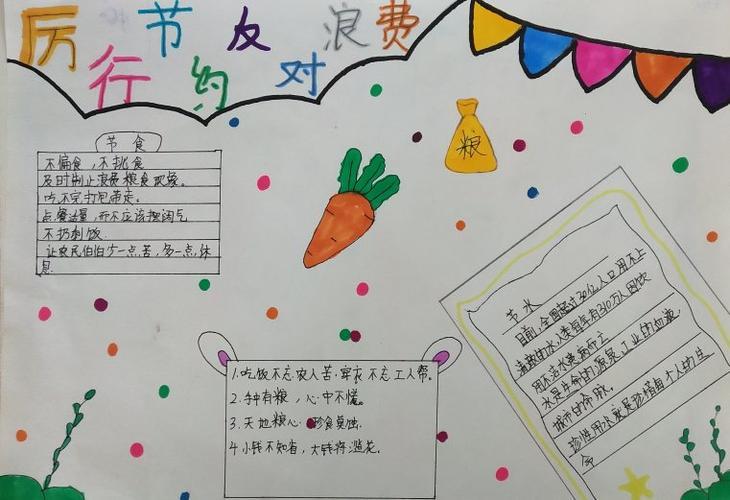 厉行节约反对浪费
粮
节食
不偏食，不挑食
及时制止浪费粮食现象。
吃不完打包带走。
点餐适量，而不应该摆阔气
不扔剩饭
让农民伯伯少一点苦，多一点休
息
节水
目前，全国超过30亿人口用不上
清洁的水，人类每年有310万人因饮
用不洁水患病而亡
水是生命的源泉、工业的血液、
城市的命脉。
珍惜用水就是珍惜每个人的生
命
1.吃饭不忘农人苦，穿衣不忘工人帮。
2.手中有粮，心中不慌。
3.天地粮心 珍食莫蚀。
4.小钱不知省，大钱将滥花。